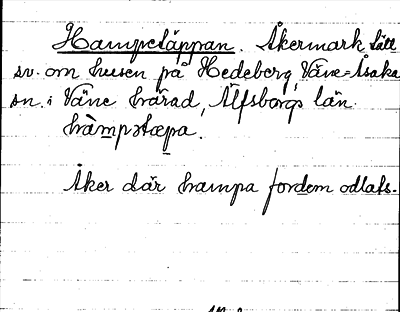 Hampetäppan. Åkermark tätt
sv. om husen på Hedeberg, Väne-Åsaka
sn. i Väne härad, Älfsborgs län.
hàmpətæpa.
Åker där hampa fordom odlats.